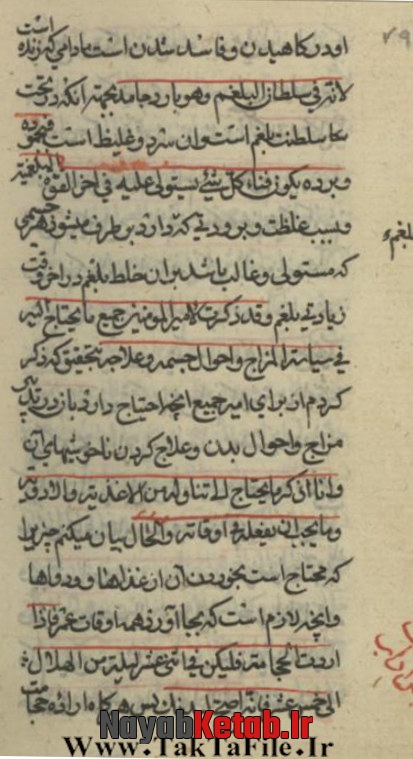 ۷۹
است
او در کاهیدن و فاسد شدن است مادامی که زنده
لانه فی سلطان البلغم وهو بارد جامد بجهة آنکه در تحت
سلطنت بلغم است و آن سرد و غلیظ است فبجموده
وبرده یکون فناء کل شیء یستولی علیه فی آخر القوة البلغمیة
و بسبب غلظت و برودتی که دارد بر طرف میشود هر جسمی
که مستولی و غالب باشد بر آن خلط بلغم در آخر وقت
زیادتی بلغم وقد ذکرت لامیر المومنین جمیع ما یحتاج الیه
فی سیاسة المزاج واحوال جسمه وعلاجه بتحقیق که ذکر
کردم از برای امیر جمیع آنچه احتیاج دارد باو در تدبیر
مزاج و احوال بدن و علاج کردن ناخوشیهای آن
وانا اذکر ما یحتاج الی تناوله من الاغذیة والادویة
وما یجب ان یفعله فی اوقاته و الحال بیان میکنم چیزیرا
که محتاج است بخوردن آن از غذاها و دواها
و آنچه لازم است که بجا آورد در همه اوقات عمر فاذا
اردت الحجامة فلیکن فی اثنی عشر لیلة من الهلال
الی خمس عشر فانه اصح لبدنک پس هر گاه اراده حجامت
بلغم
NayabKetab.Ir
Www.TakTaFile.Ir